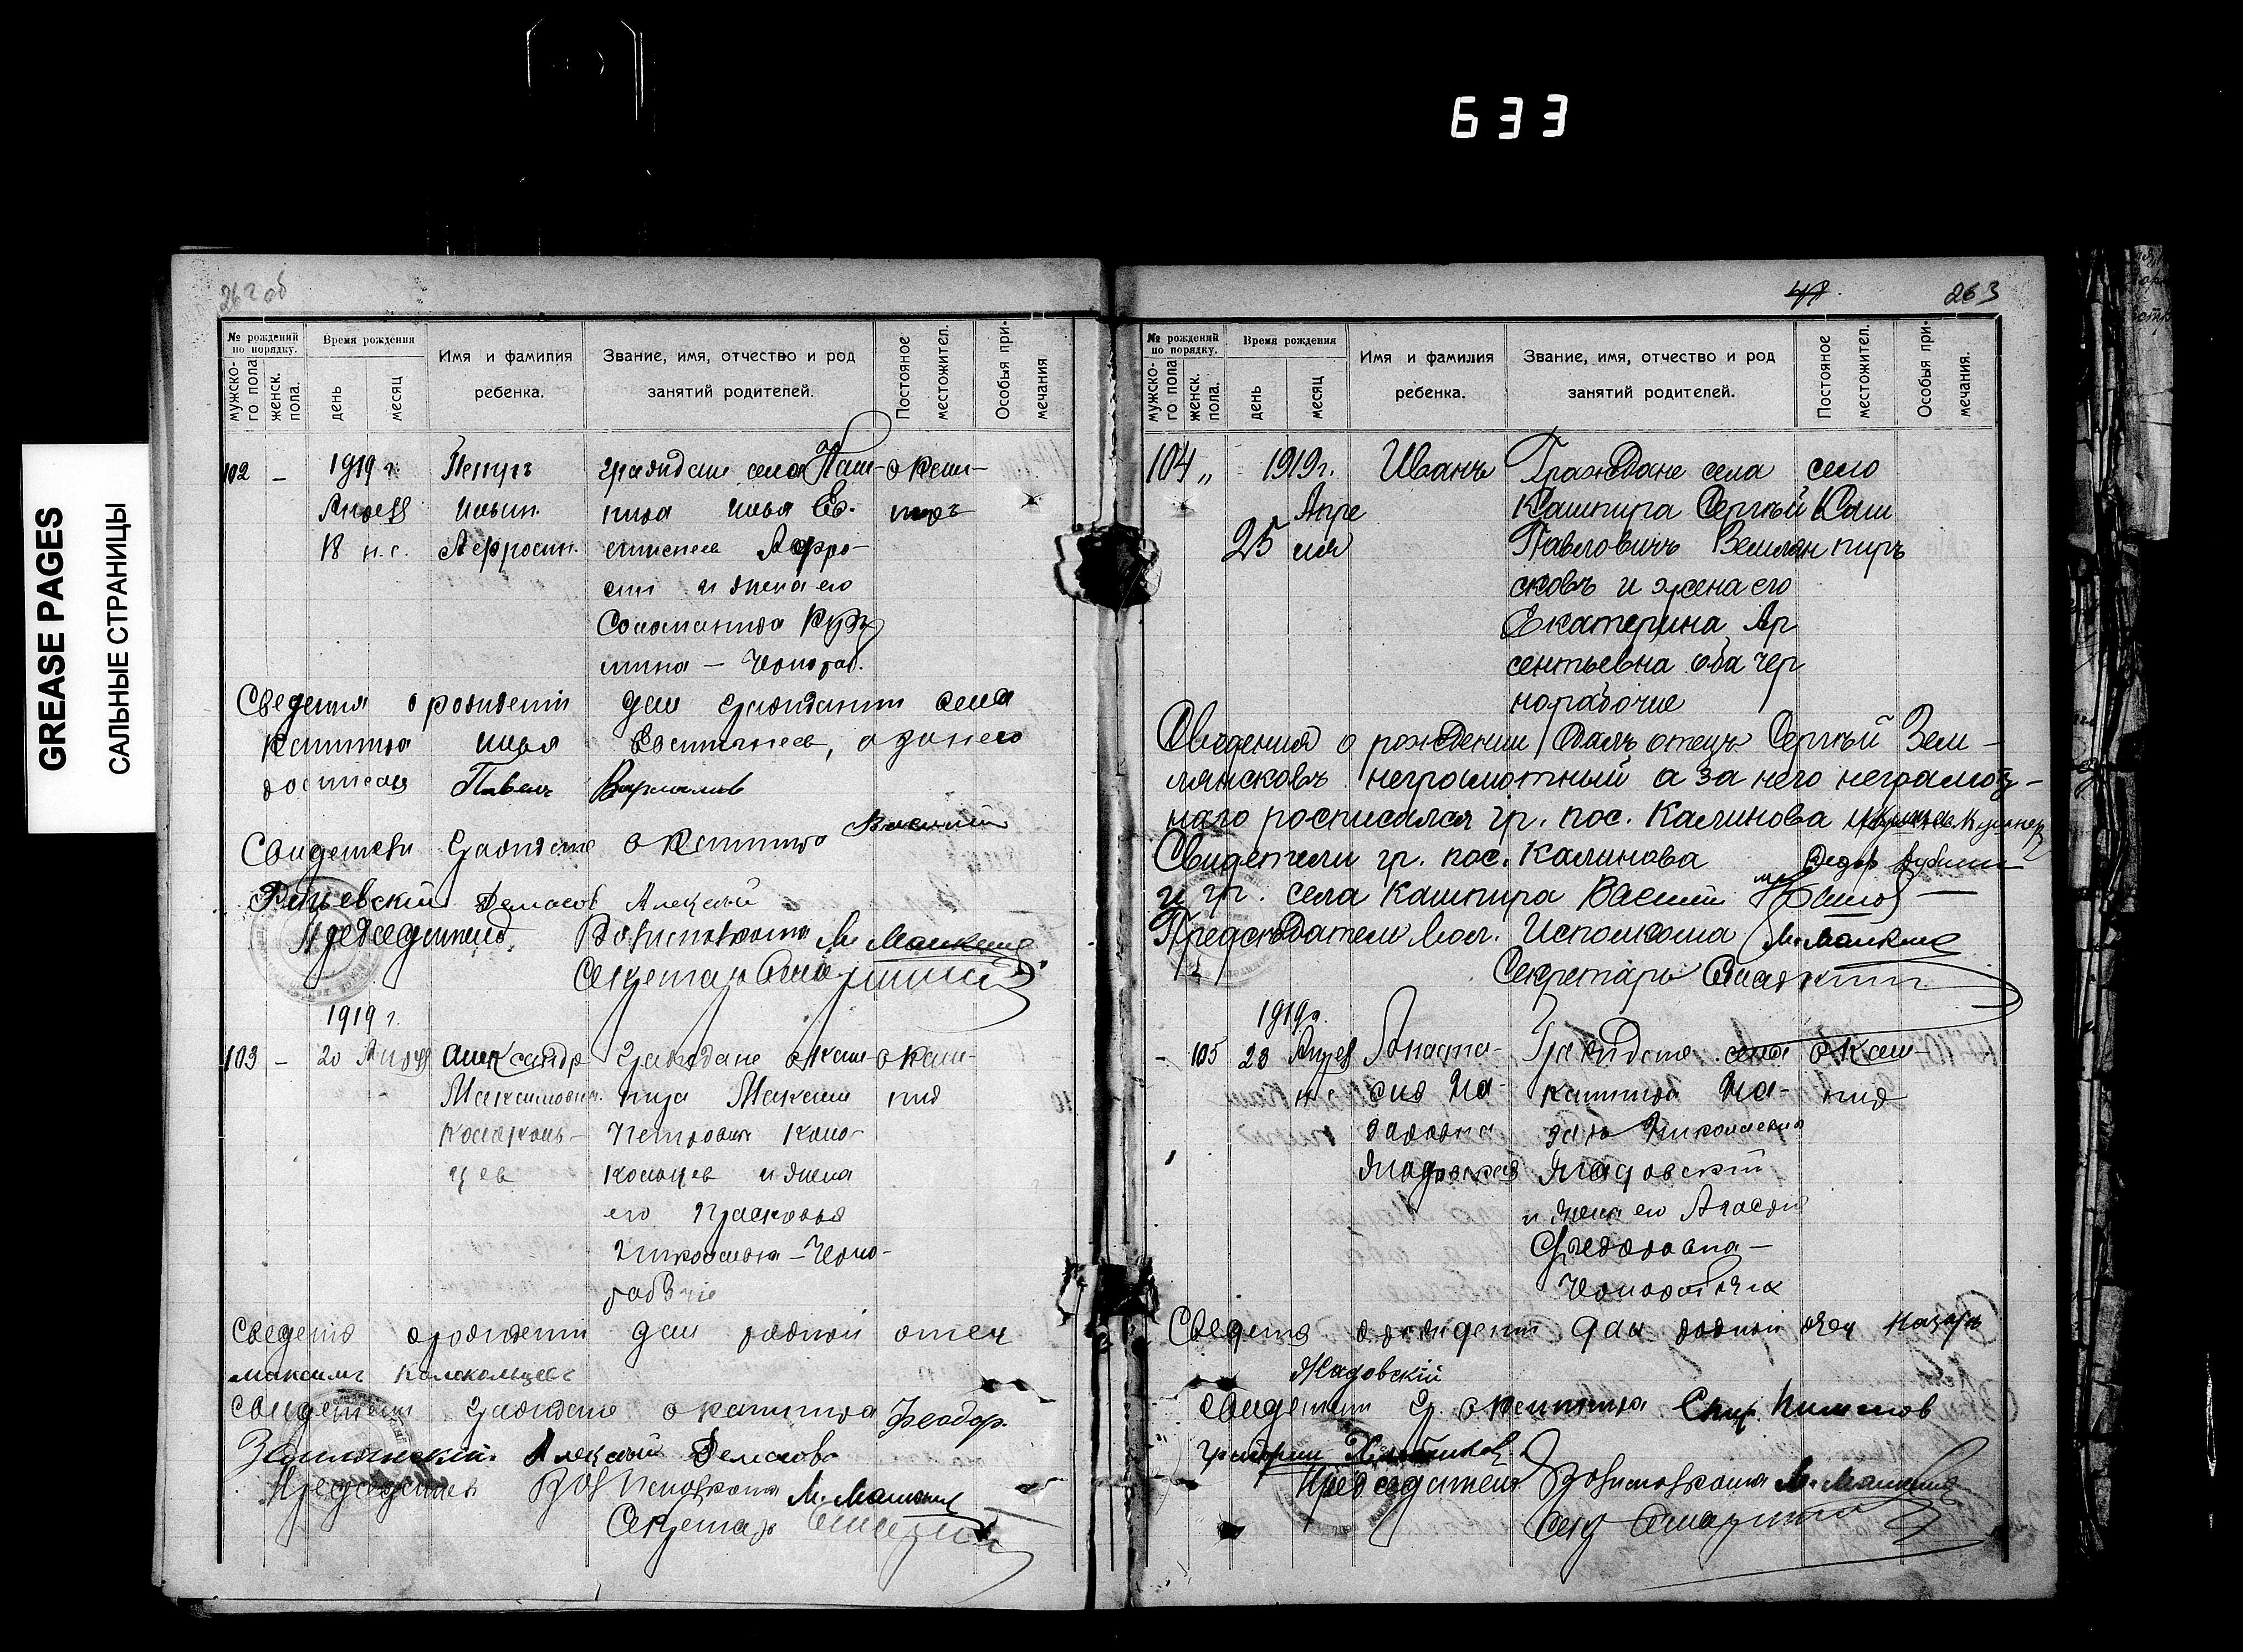 633
GREASE PAGES
САЛЬНЫЕ СТРАНИЦЫ
262 об
№ рождений по порядку.
мужско-го пола
женск. пола.
Время рождения
день
месяц
Имя и фамилия ребенка.
Звание, имя, отчество и род занятий родителей.
Постояное местожител.
Особыя при-мечания
102 –
1919 г.
18 н. с.
Петръ
Ильин.
граждане села Каш-
пира Илья Ев.
и жена его
Соломанида Кузь
мина – Чернораб.
с Каш-
пиръ
Сведения о рождении дал гражданин села
Кашпира Илья Евстигнеев, а за него
росписался Павелъ Варламов
Свидетели Граждане с Кашпира
Алексей
Председатель Волисполкома М. Манкин
Секретарь
1919 г.
103 –
20 Апреля
Александр
Максимович
Колоколь-
цев
Граждане с Каш-
пира Максим
Петрович Коло-
кольцев и жена
его Прасковья
Николаевна – Черно-
рабочие
с Каш-
пир
Сведения о рождении дал родной отец
Максимъ Колокольцевъ
Свидетели Граждане с Кашпира Феодор
Землянский. Алексей
Председатель Вол Исполкома М. Манкин
Секретарь
47
263
№ рождений по порядку.
мужско-го пола
женск. пола.
Время рождения
день
месяц
Имя и фамилия ребенка.
Звание, имя, отчество и род занятий родителей.
Постояное местожител.
Особыя при-мечания.
104 „
1919 г.
Апре
25 ля
Иванъ
Граждане села
Кашпира Сергѣй
Павловичъ Землян
сковъ и жена его
Екатерина Ар
сентьевна оба чер
норабочие
село
Каш
пиръ
Сведения о рождении Далъ отецъ Сергѣй Зем-
лянсковъ неграмотный а за него неграмот-
наго росписался гр. пос. Калинова
Свидетели гр. пос. Калинова Федор
и гр. села Кашпира Василий
Председатель Вол. Исполкома М. Манкин
Секретарь
1919 г.
– 105
28 Апреля
н. с
Анаста-
сия На-
заровна
Жадовская
Граждане села
Кашпира На-
зарь Николаевич
Жадовский
и жена его
Федоровна –
Чернорабочие
с Каш-
пир
Сведения о рождении дал родной отец Назаръ
Жадовский
Свидетели Гр. с Кашпира
Григорий
Председатель Волисполкома М. Манкин
Секр